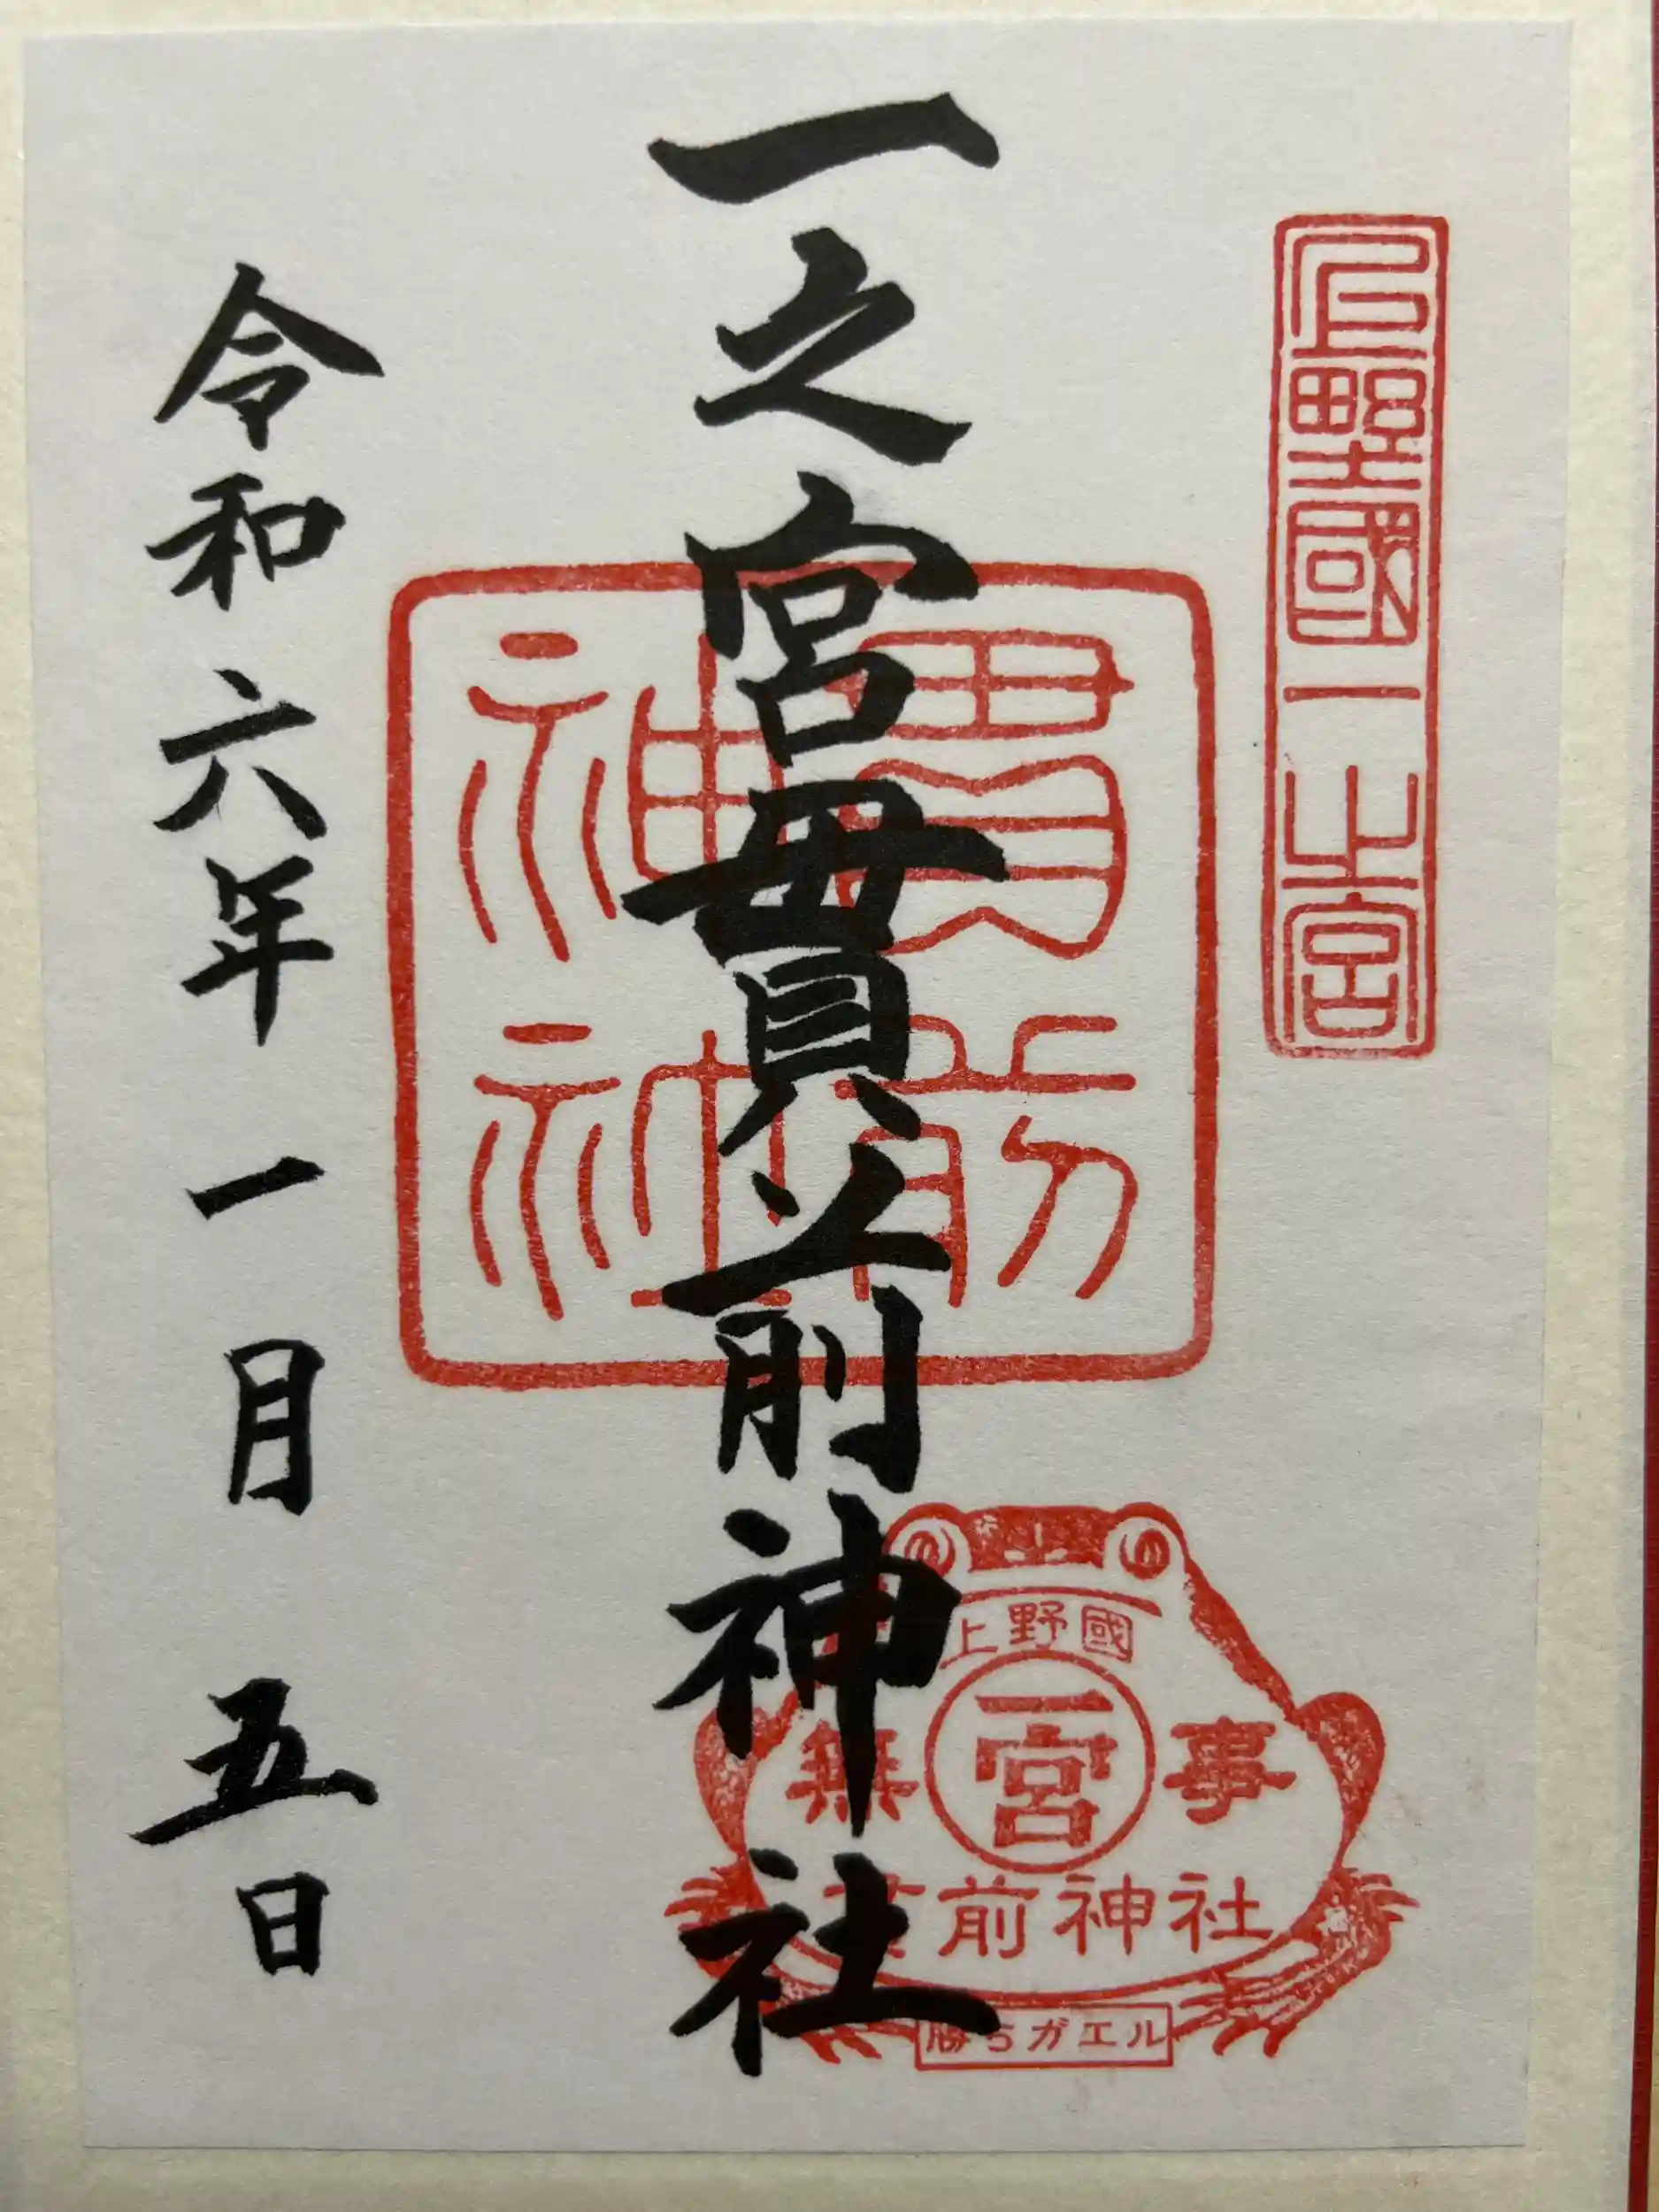 上野國一之宮
一之宮貫前神社
貫前
神社
令和六年一月五日
上野國
一宮
無事
貫前神社
勝ちガエル